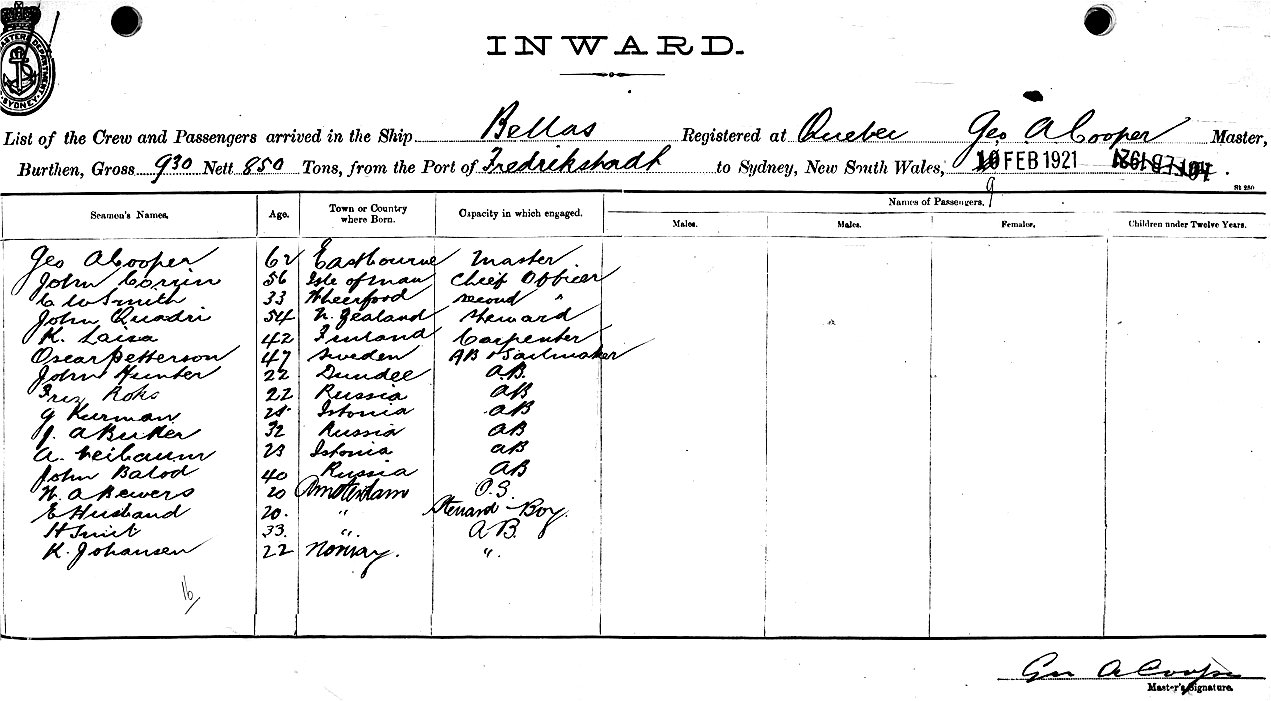 INWARD.
List of the Crew and Passengers arrived in the Ship Bellas Registered at Quebec Geo. A Cooper Master,
Burthen, Gross 930 Nett 850 Tons, from the Port of Fredrikstadt to Sydney, New South Wales, 10 FEB 1921
9
Seamen's Names. Age. Town or Country where Born. Capacity in which engaged. Names of Passengers.
Males. Males. Females. Children under Twelve Years.
Geo A Cooper 62 Eastbourne Master
John Corrin 56 Isle of Man Chief Officer
C W Smith 33 second "
John Quadri 54 N. Zealand Steward
K. Laisa 42 Finland Carpenter
Oscar Petterson 47 Sweden AB & Sailmaker
John Hunter 22 Dundee A.B.
Friz Roks 22 Russia AB
G Kurman Istonia AB
J. A Butler 32 Russia AB
A. Veibaum 23 Istonia AB
John Balod 40 Russia AB
H. A Bewers 20 Amsterdam O.S.
E Husband 20. " Steward Boy.
H Smit 33. ". A B.
K. Johansen 22 Norway. ".
16
Geo A Cooper
Master's Signature.